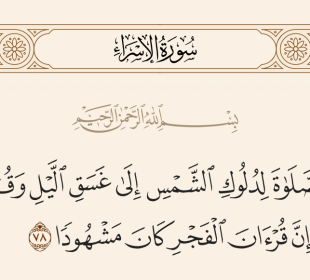 سُورَةُ الإِسْرَاءِ
بِسْمِ اللَّهِ الرَّحْمَٰنِ الرَّحِيمِ
لِدُلُوكِ الشَّمْسِ إِلَىٰ غَسَقِ الَّيْلِ
إِنَّ قُرْءَانَ الْفَجْرِ كَانَ مَشْهُودًا ٧٨